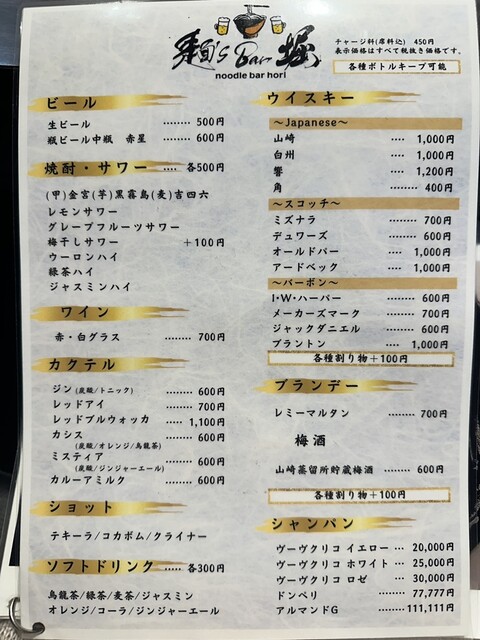 麺's Bar 堀
noodle bar hori
チャージ料(席料込) 450円
表示価格はすべて税抜き価格です。
各種ボトルキープ可能
ビール
生ビール ........ 500円
瓶ビール中瓶 赤星 ........ 600円
焼酎・サワー .... 各500円
(甲)金宮(芋)黒霧島(麦)吉四六
レモンサワー
グレープフルーツサワー
梅干しサワー +100円
ウーロンハイ
緑茶ハイ
ジャスミンハイ
ワイン
赤・白グラス ........ 700円
カクテル
ジン(炭酸/トニック) ........ 600円
レッドアイ ........ 700円
レッドブルウォッカ ..... 1,100円
カシス ........ 600円
(炭酸/オレンジ/烏龍茶)
ミスティア ........ 600円
(炭酸/ジンジャーエール)
カルーアミルク ........ 600円
ショット
テキーラ/コカボム/クライナー
ソフトドリンク ..... 各300円
烏龍茶/緑茶/麦茶/ジャスミン
オレンジ/コーラ/ジンジャーエール
ウイスキー
〜Japanese〜
山崎 .... 1,000円
白州 .... 1,000円
響 .... 1,200円
角 ........ 400円
〜スコッチ〜
ミズナラ ........ 700円
デュワーズ ........ 600円
オールドパー .... 1,000円
アードベック .... 1,000円
〜バーボン〜
I・W・ハーパー ........ 600円
メーカーズマーク ........ 700円
ジャックダニエル ........ 600円
ブラントン .... 1,000円
各種割り物+100円
ブランデー
レミーマルタン ........ 700円
梅酒
山崎蒸留所貯蔵梅酒 ...... 600円
各種割り物+100円
シャンパン
ヴーヴクリコ イエロー ... 20,000円
ヴーヴクリコ ホワイト ... 25,000円
ヴーヴクリコ ロゼ ... 30,000円
ドンペリ ........ 77,777円
アルマンドG ....... 111,111円